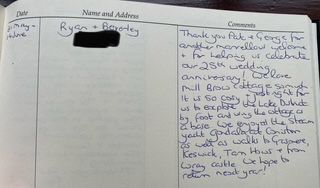 Date
Name and Address
Comments
31 May -
14 June
Ryan + Beverley
Thank you Pat & George for
another marvellous welcome
+ for helping us celebrate
our 25th wedding
anniversary! We love
Mill Brow cottage so much
It is so cosy + just right for
us to explore the Lake District
by foot and using the cottage as
a base. We enjoyed the Steam
yacht Gondola at Coniston
as well as walks to Grasmere,
Keswick, Tarn Hows + from
Wray castle. We hope to
return next year!